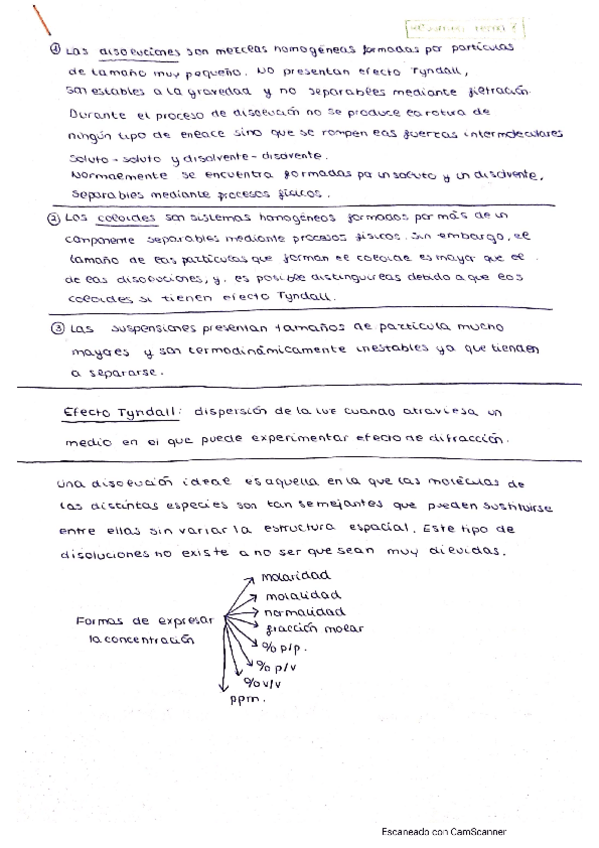 Resumen Tema 7
① Las disoluciones son mezclas homogéneas formadas por partículas
de tamaño muy pequeño. No presentan efecto Tyndall,
son estables a la gravedad y no separables mediante filtración.
Durante el proceso de disolución no se produce la rotura de
ningún tipo de enlace sino que se rompen las fuerzas intermoleculares
soluto - soluto y disolvente - disolvente.
Normalmente se encuentra formadas por un soluto y un disolvente,
separables mediante procesos físicos.
② Los coloides son sistemas homogéneos formados por más de un
componente separables mediante procesos físicos. Sin embargo, el
tamaño de las partículas que forman el coloide es mayor que el
de las disoluciones, y es posible distinguirlas debido a que los
coloides si tienen efecto Tyndall.
③ Las suspensiones presentan tamaños de partícula mucho
mayores y son termodinámicamente inestables ya que tienden
a separarse.
Efecto Tyndall: dispersión de la luz cuando atraviesa un
medio en el que puede experimentar efecto de difracción.
Una disolución ideal es aquella en la que las moléculas de
las distintas especies son tan semejantes que pueden sustituirse
entre ellas sin variar la estructura espacial. Este tipo de
disoluciones no existe a no ser que sean muy diluidas.
Formas de expresar
la concentración
molaridad
molalidad
normalidad
fracción molar
% p/p.
% p/v
% v/v
ppm.
Escaneado con CamScanner